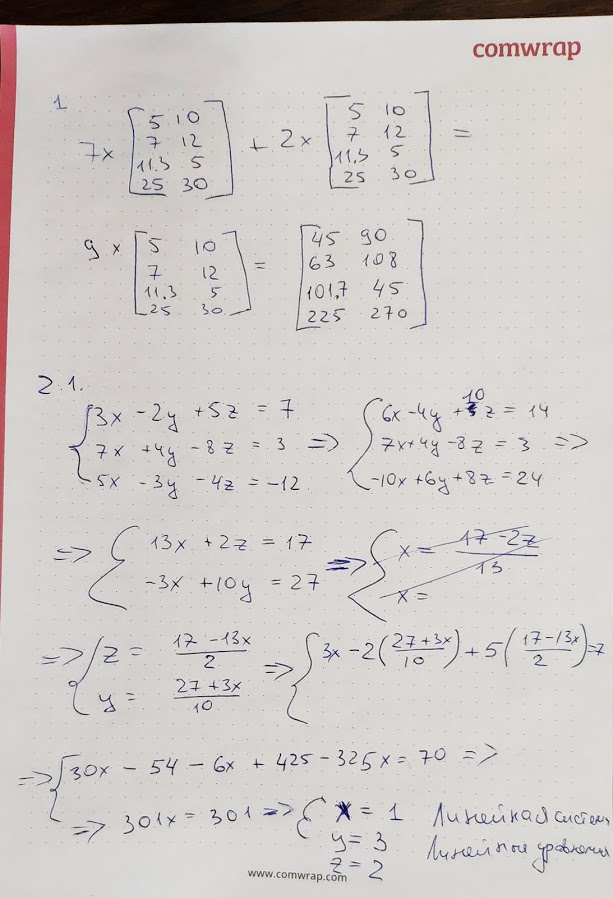 comwrap
1
7x [5 10; 7 12; 11.3 5; 25 30] + 2x [5 10; 7 12; 11.3 5; 25 30] =
9 x [5 10; 7 12; 11.3 5; 25 30] = [45 90; 63 108; 101,7 45; 225 270]
2.1.
{3x - 2y + 5z = 7
7x + 4y - 8z = 3 =>
5x - 3y - 4z = -12
{6x - 4y + 10z = 14
7x + 4y - 8z = 3 =>
-10x + 6y + 8z = 24
=> {13x + 2z = 17
-3x + 10y = 27
=> {x = (17 - 2z)/13
x =
=> {z = (17 - 13x)/2
y = (27 + 3x)/10
=> {3x - 2((27 + 3x)/10) + 5((17 - 13x)/2) = 7
=> {30x - 54 - 6x + 425 - 325x = 70 =>
=> 301x = 301 => {x = 1
y = 3
z = 2
Линейная система
Линейные уравнения
www.comwrap.com